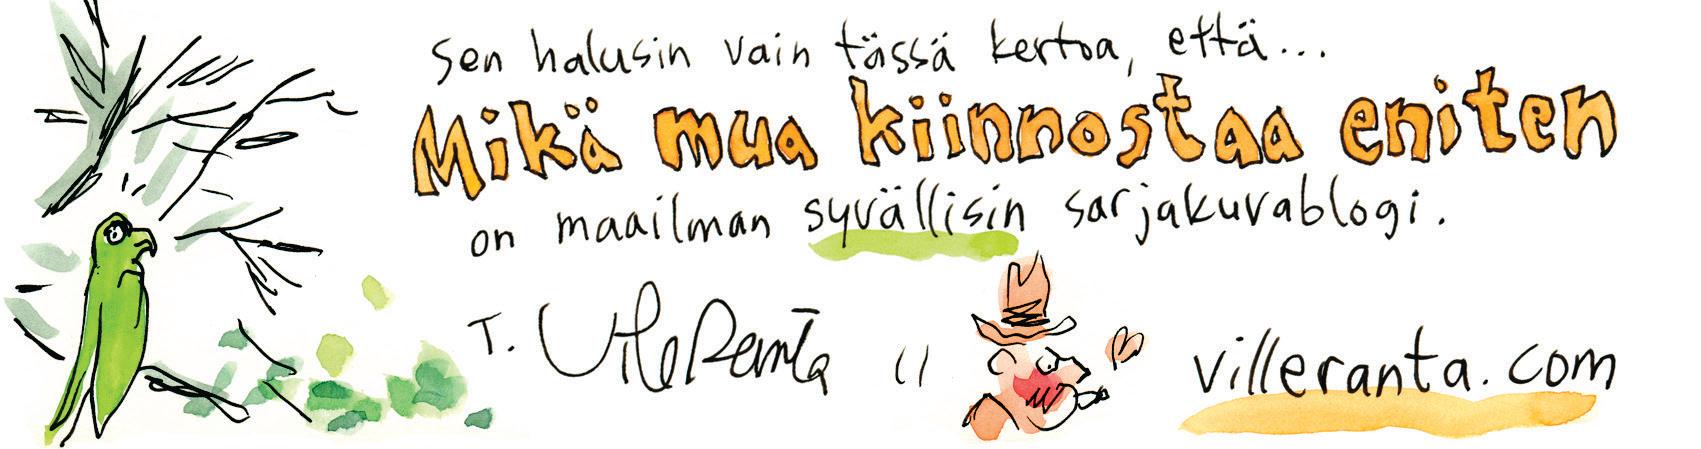 sen halusin vain tässä kertoa, että...
Mikä mua kiinnostaa eniten
on maailman syvällisin sarjakuvablogi.
T. Ville Ranta
villeranta.com